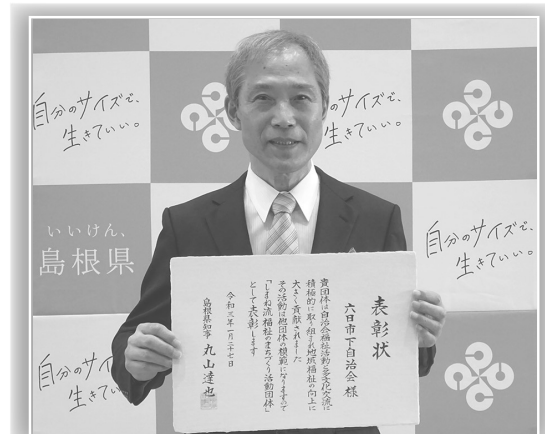 自分のサイズで、
生きていい。
自分のサイズで、
生きていい。
いいけん、
島根県
自分のサイズで、
生きていい。
自分のサイズ
生きてい
表彰状
六日市下自治会 様
貴団体は自治会福祉活動と多文化交流に
積極的に取り組まれ地域福祉の向上に
大きく貢献されました
その活動は他団体の模範になりますので
「しまね流福祉のまちづくり活動団体」
として表彰します
令和三年一月二十七日
島根県知事 丸山達也